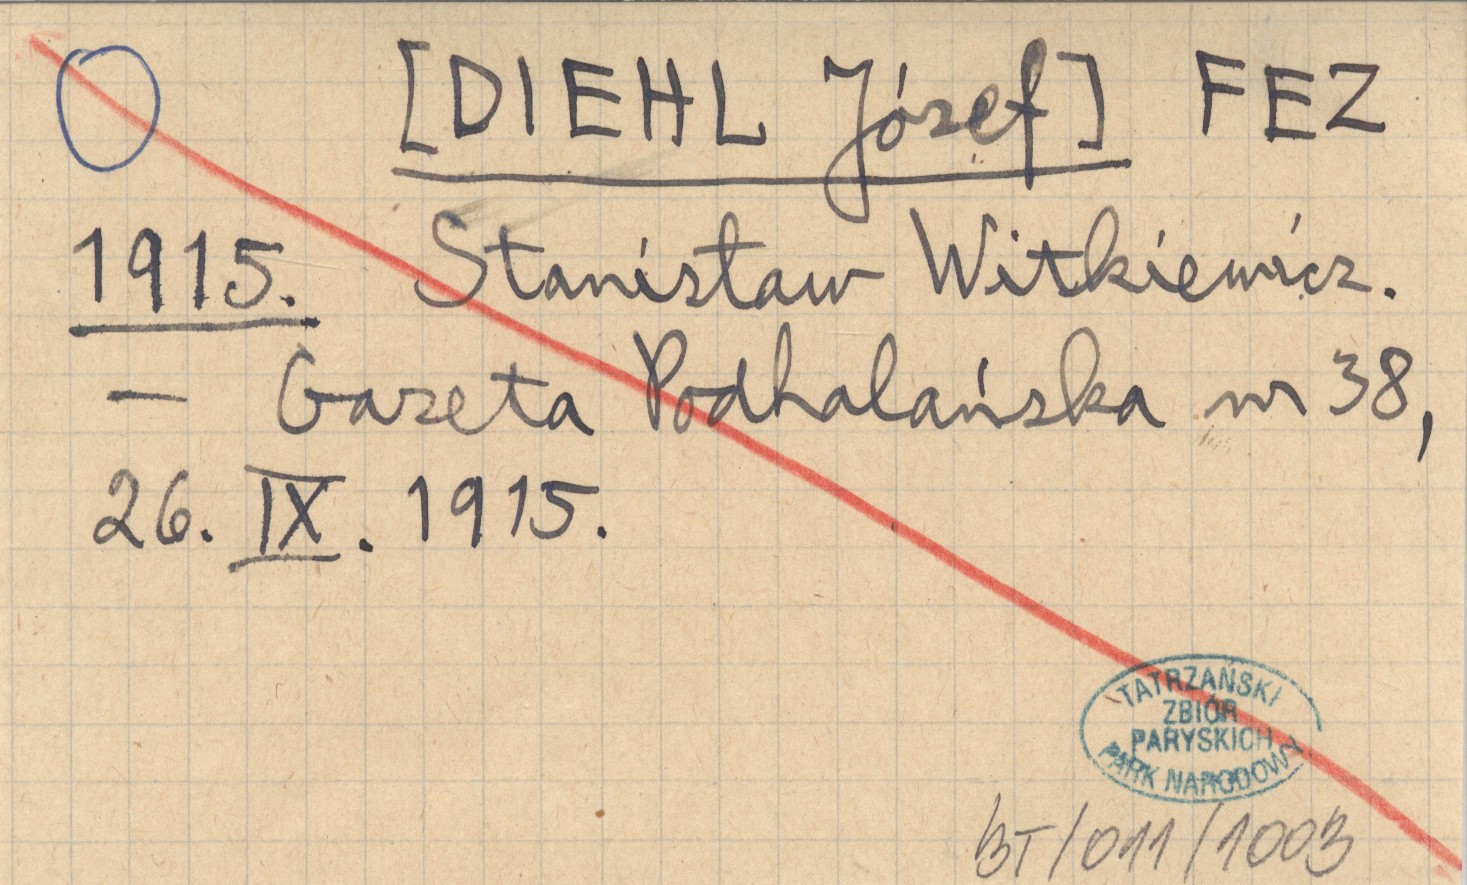 [DIEHL Józef] FEZ
1915. Stanisław Witkiewicz.
— Gazeta Podhalańska nr 38,
26. IX. 1915.
TATRZAŃSKI
ZBIÓR
PARYSKICH
PARK NARODOWY
BT/011/1003